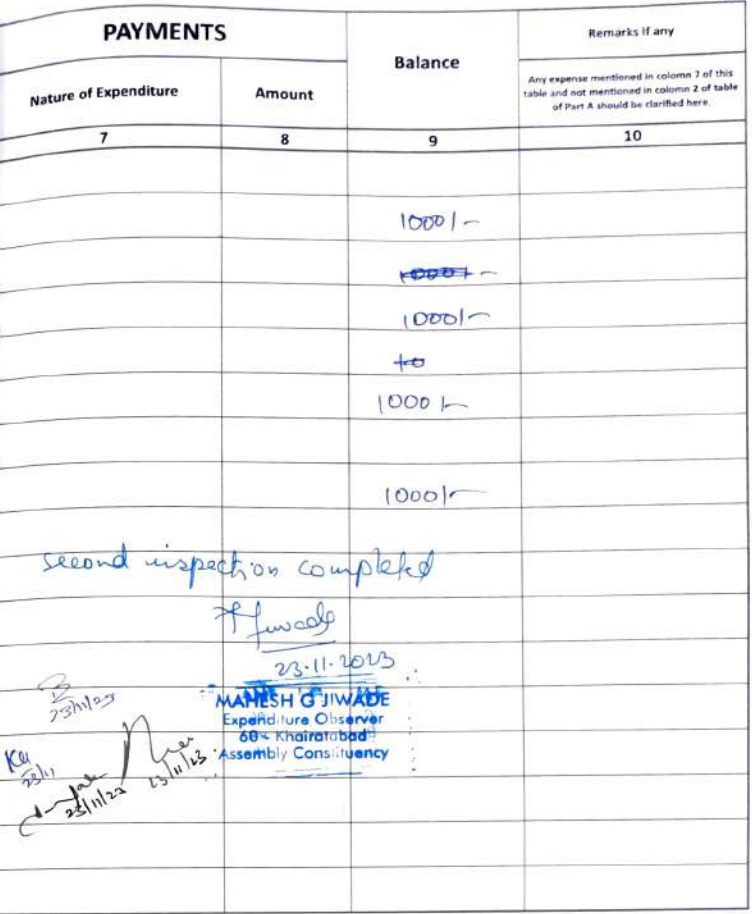 PAYMENTS
Balance
Remarks if any
Nature of Expenditure
Amount
Any expense mentioned in colomn 7 of this
table and not mentioned in colomn 2 of table
of Part A should be clarified here.
7 8 9 10
1000/-
1000/-
1000/-
10
1000/-
1000/-
second inspection completed
23.11.2023
MAHESH G JIWADE
Expenditure Observer
60- Khairatabad
Assembly Constituency
23/11/23
23/11
23/11/23
23/11/23